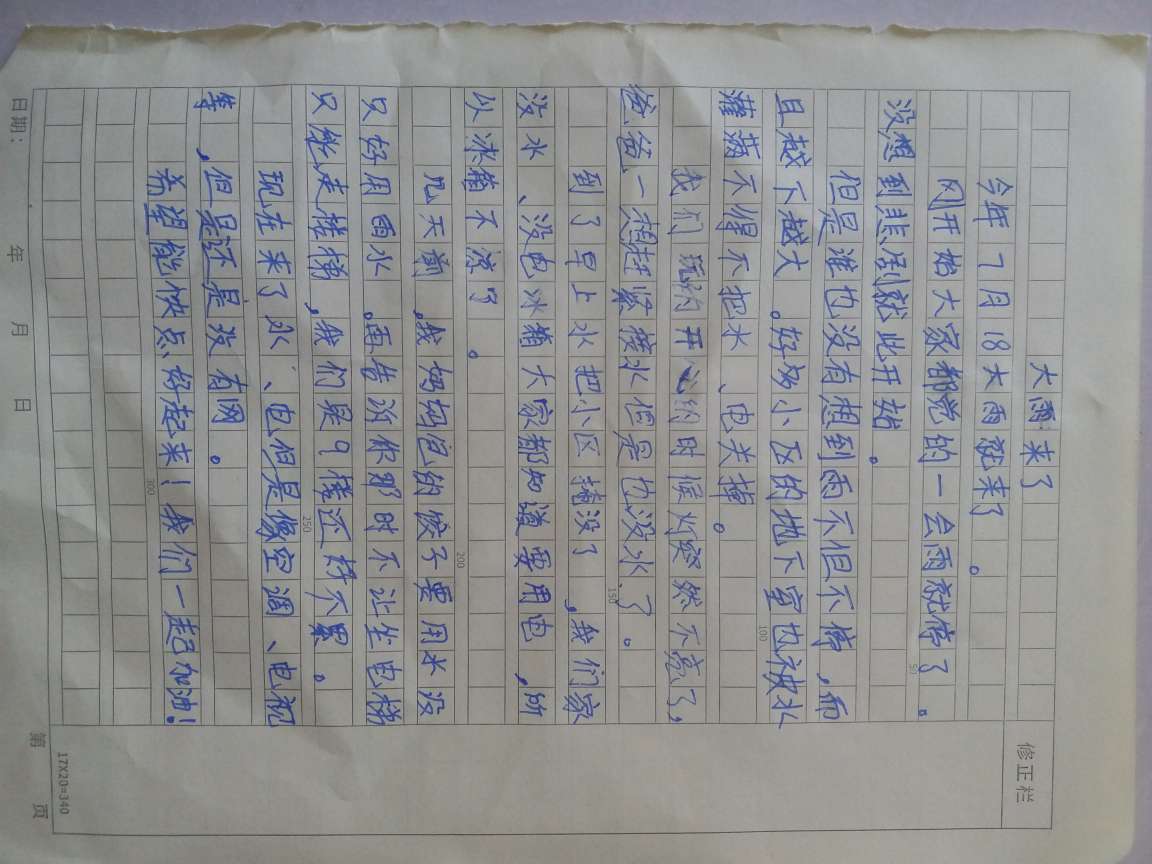 修正栏
大雨来了
今年7月18大雨就来了。
刚开始大家都觉的一会雨就停了。
没想到悲剧就此开始。
但是谁也没有想到雨不但不停,而
且越下越大。好多小区的地下室也被水
淹
不得不把水、电关掉。
我们玩的开心的时候灯突然不亮了,
爸爸一想赶紧接水但是也没水了。
到了早上水把小区淹没了,我们家
没水、没电冰箱大家都知道要用电,所
以冰箱不凉了。
几天前,我妈妈包的饺子要用水没
只好用雨水。再告诉你那时不让坐电梯
只能走楼梯,我们是9楼还好不累。
现在来了水、电但是像空调、电视
等,但是还是没有网。
希望能快点好起来!我们一起加油!
50
100
150
200
250
300
17X20=340
日期: 年 月 日 第 页